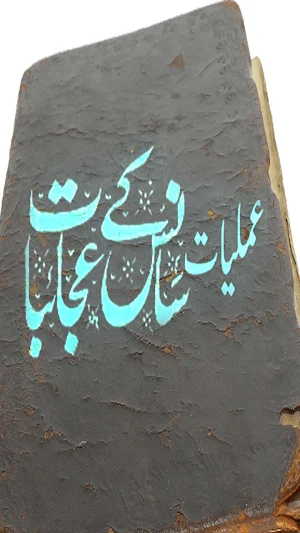 عملیات سانس کے عجائبات